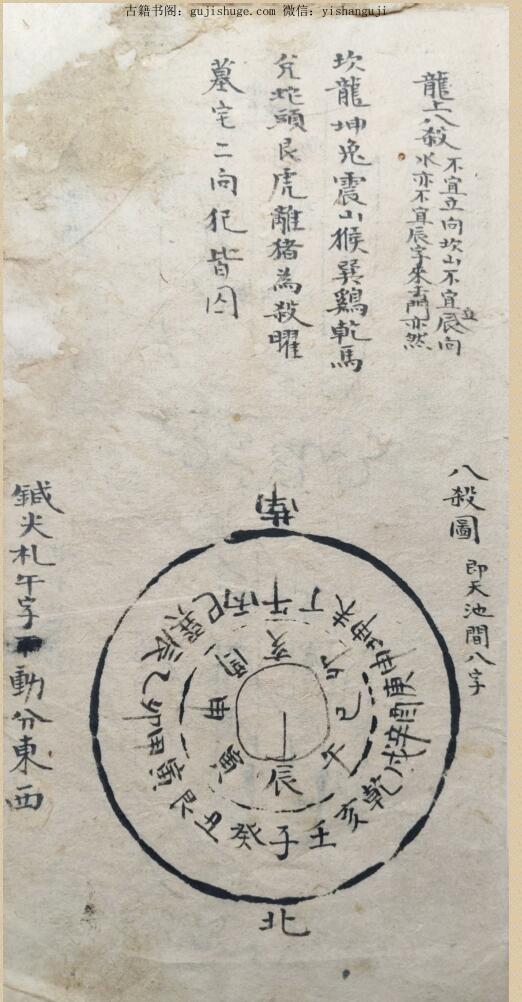 古籍书阁：gujishuge.com 微信：yishanguji
龍上八殺
不宜立向坎山不宜立辰向
水亦不宜辰字來去門亦然
坎龍坤兎震山猴巽鷄乾馬
兌蛇頭艮虎離猪為殺曜
墓宅二向犯皆凶
八殺圖
即天池間八字
南
丙午丁未坤申庚酉辛戌乾亥壬子癸丑艮寅甲卯乙辰巽巳
亥卯巳午辰寅申酉
北
鍼尖札午字
動分東西